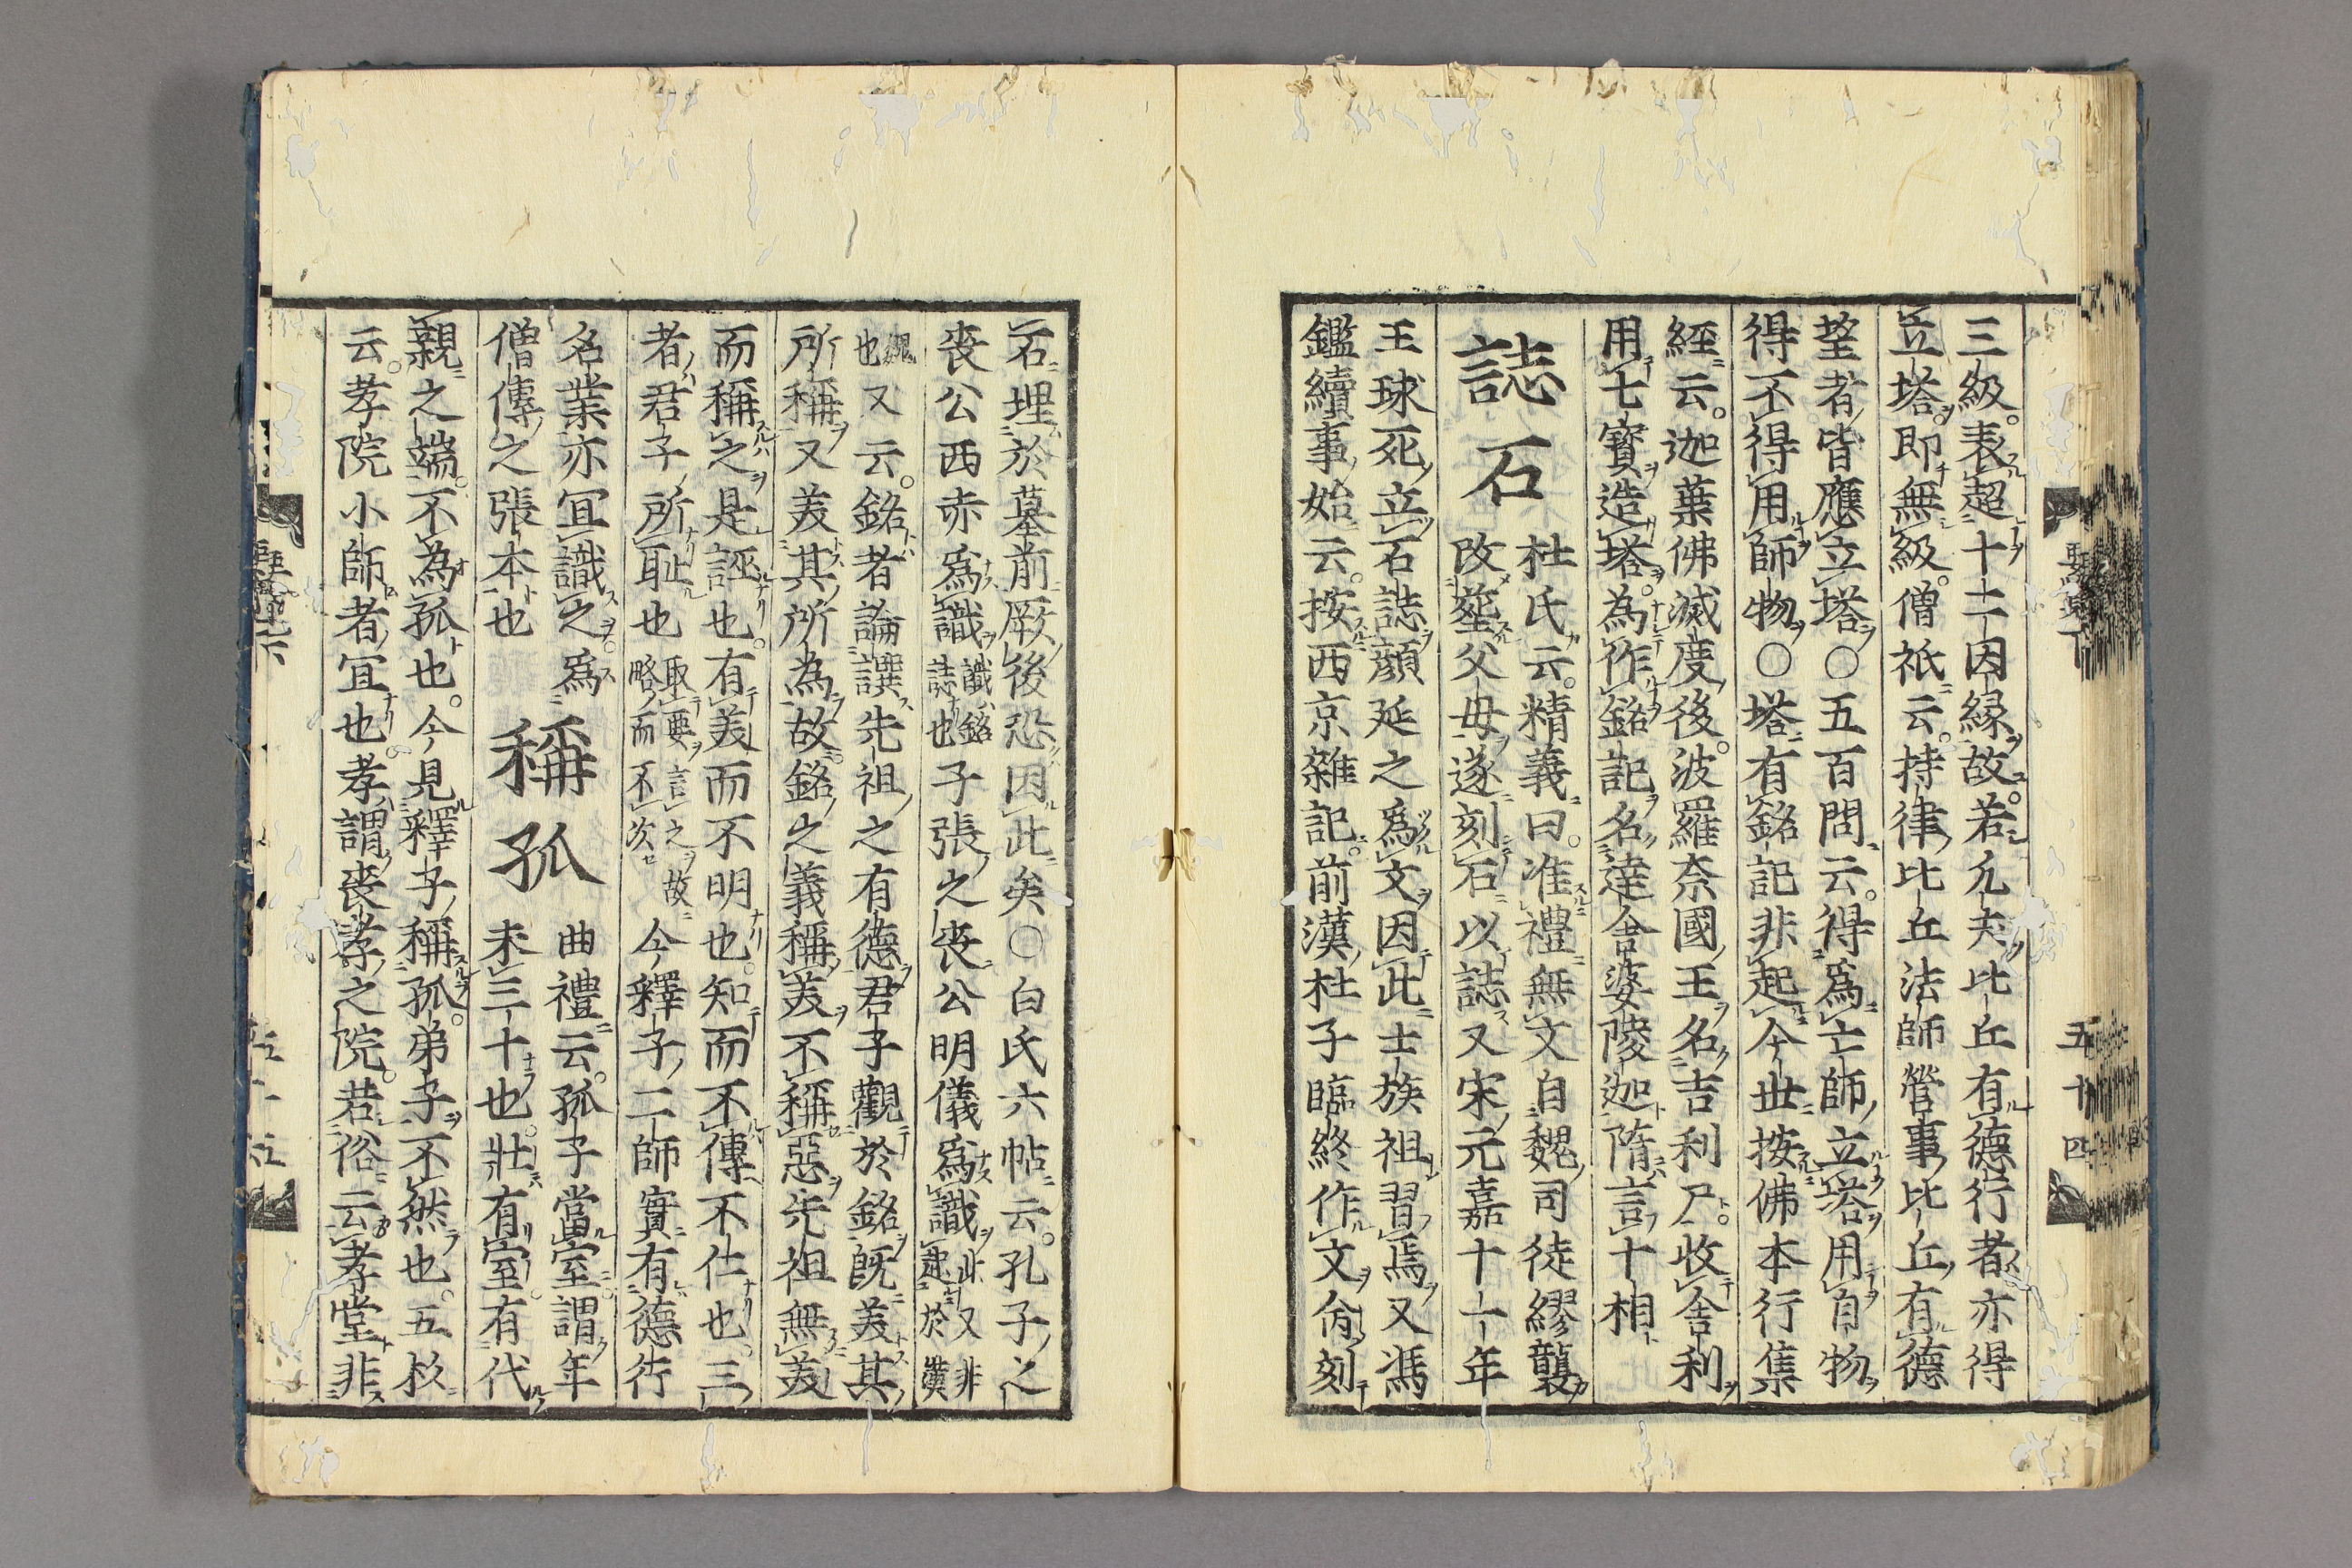 三級。表超十二因緣故。若凡夫比丘有德行者亦得
立塔。即無級。僧祇云。持律比丘法師營事比丘有德
望者皆應立塔○五百問云。得爲亡師立塔用自物
得不得用師物○塔有銘記非起今世按佛本行集
經云。迦葉佛滅度後。波羅奈國王名吉利尸。收舍利
用七寶造塔。為作銘記名達舍婆陵迦隋言十相
誌石
杜氏云。精義曰。准禮無文自魏司徒繆襲
改葬父母遂刻石以誌又宋元嘉十一年
王球死立石誌顔延之爲文因此士族祖習焉又馮
鑑續事始云。按西京雜記。前漢杜子臨終作文俏刻
五十四
石埋於墓前厥後恐因此矣○白氏六帖云。孔子之
喪公西赤爲識
識銘
誌也
子張之喪公明儀爲識
此又非
起於漢
魏
也
又云。銘者論譔先祖之有德君子觀於銘既美其
所稱又美其所為故銘之義稱美不稱惡先祖無美
而稱之是誣也。有美而不明也。知而不傳不仁也。三
者君子所恥也
取要言之故
略而不次
今釋子二師實有德行
名業亦宜識之。爲
僧傳之張本也
稱孤
曲禮云。孤子當室謂年
未三十也。壯有室。有代
親之端。不為孤也。今見釋子稱孤。弟子不然也。五杉
云。孝院小師者宜也。孝謂喪孝之院。若俗云孝堂非